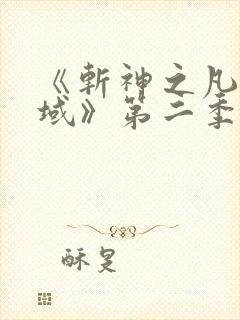 《斩神之凡
域》第二季
酥旻